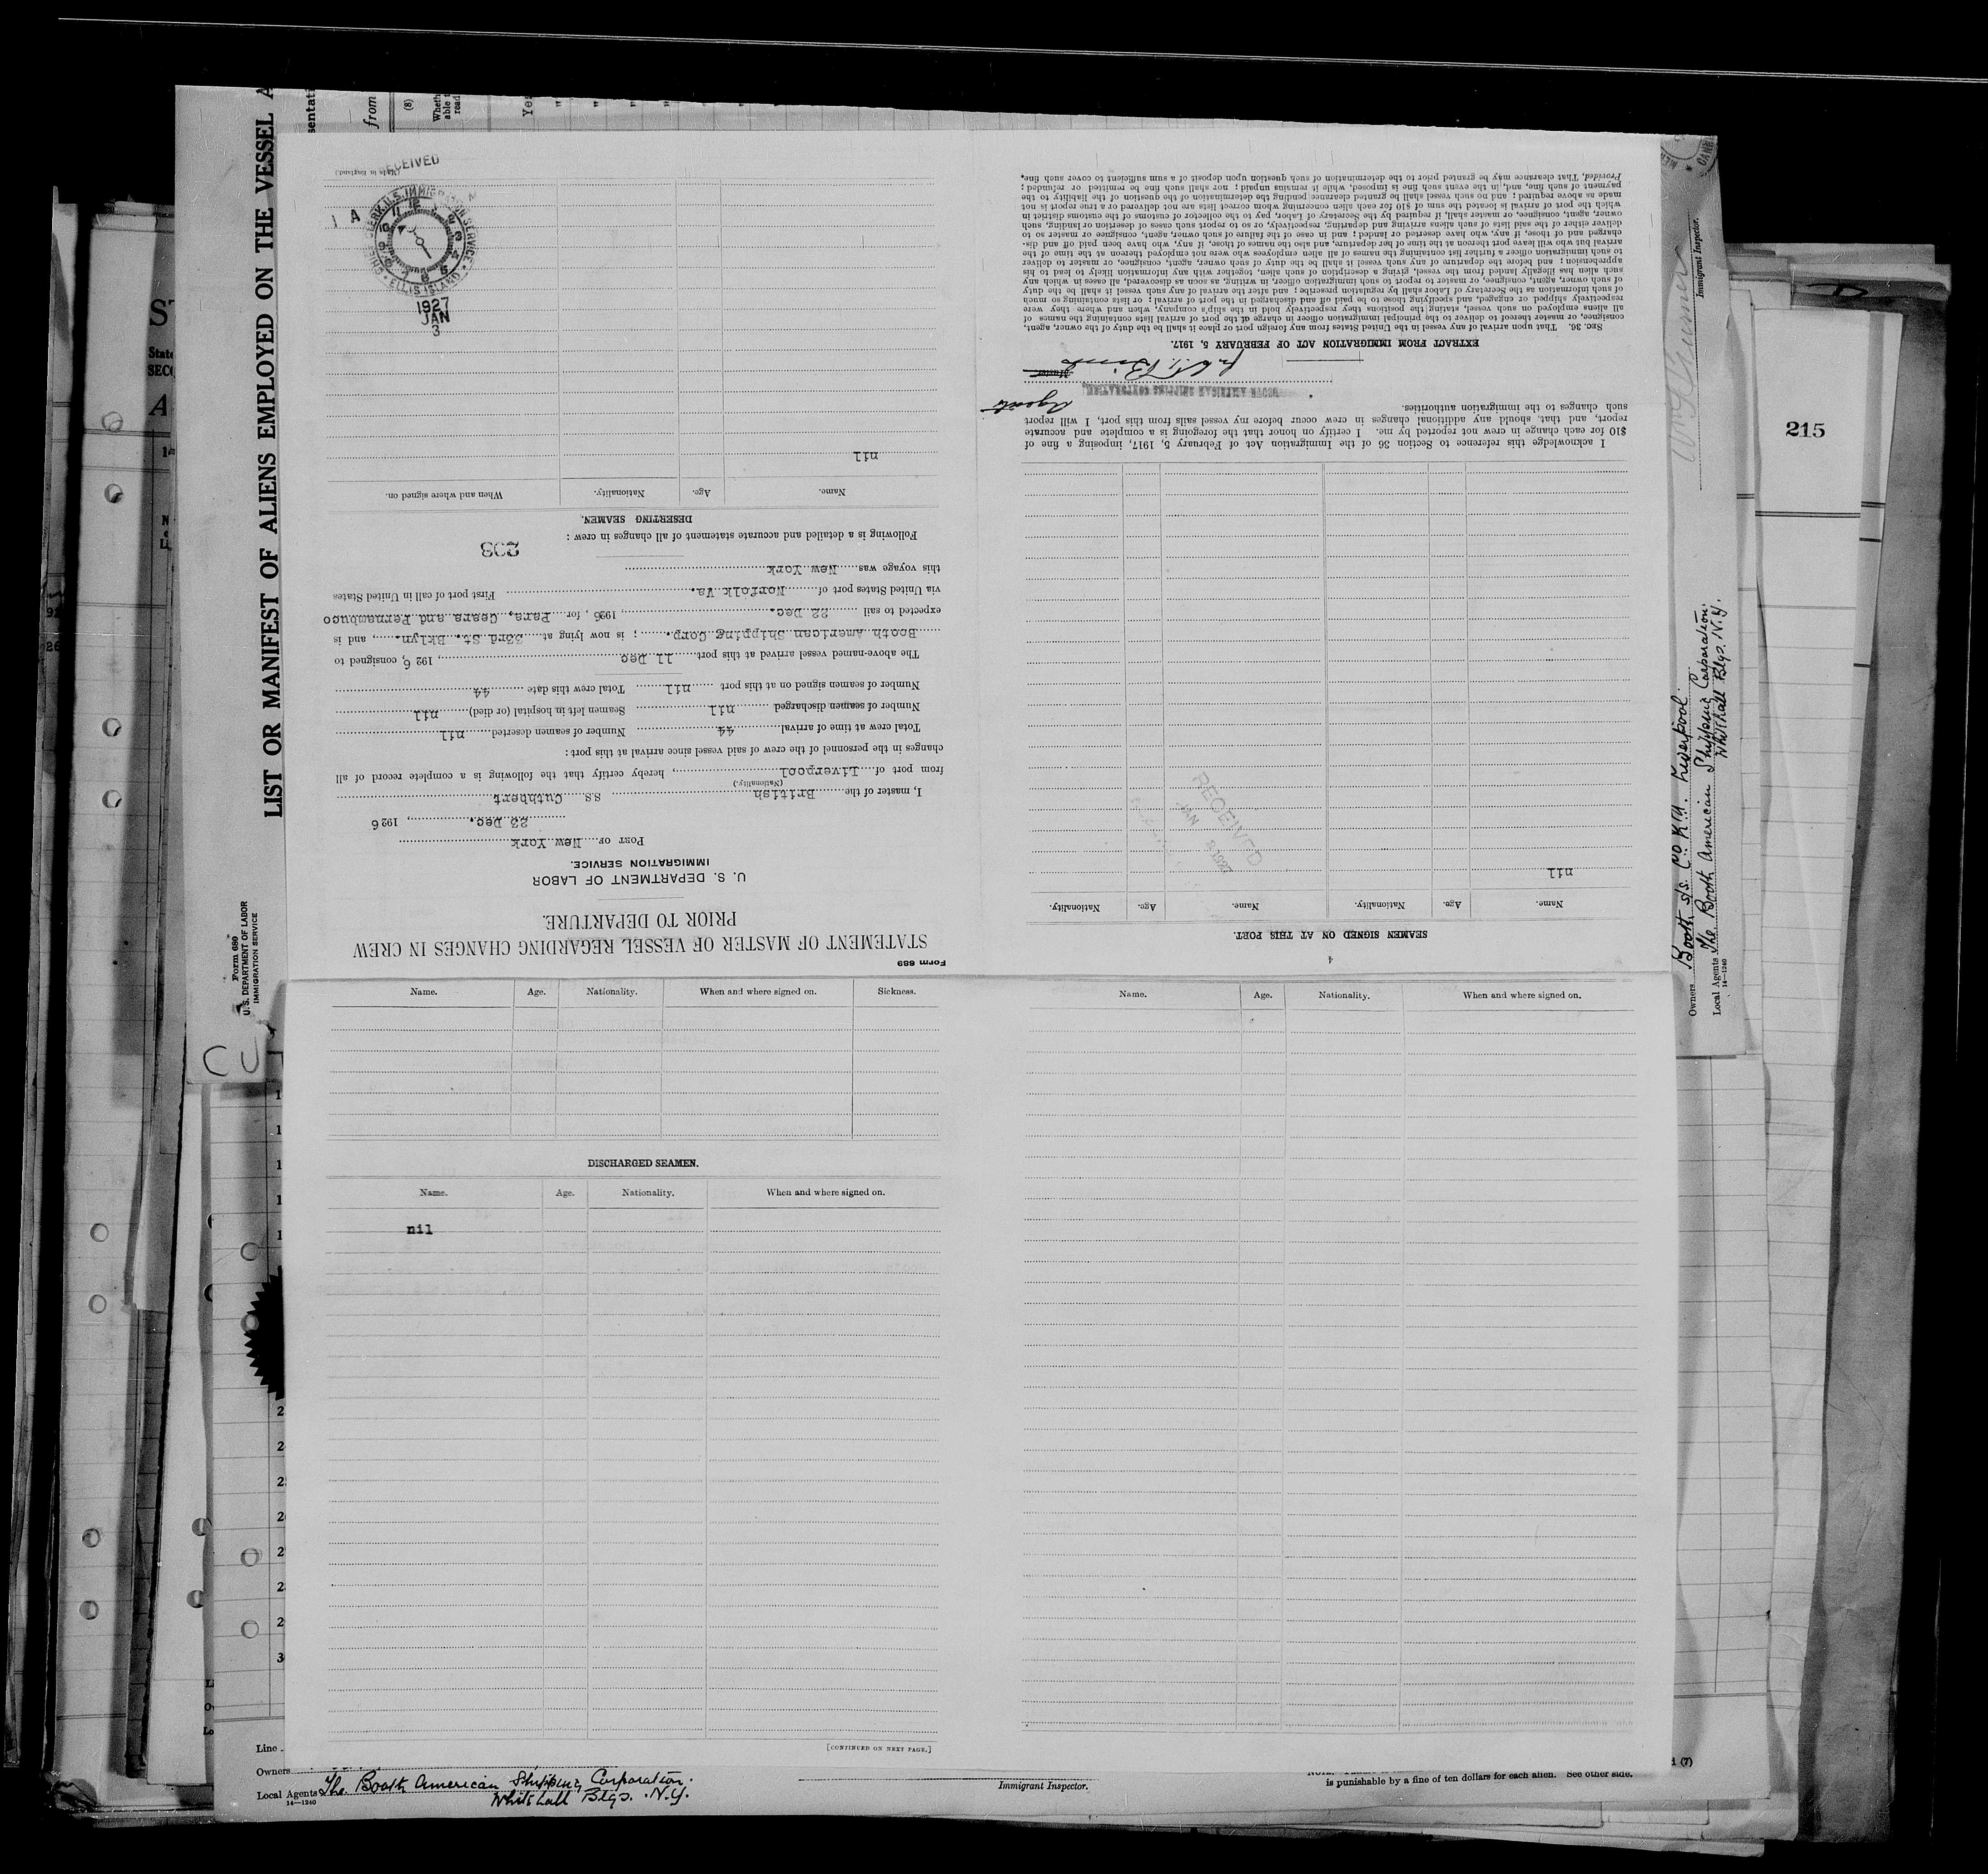 Form 689
STATEMENT OF MASTER OF VESSEL REGARDING CHANGES IN CREW
PRIOR TO DEPARTURE.
U. S. DEPARTMENT OF LABOR
IMMIGRATION SERVICE.
PORT OF New York
23 Dec., 1926
I, master of the British SS Cuthbert
(Nationality.)
from port of Liverpool, hereby certify that the following is a complete record of all
changes in the personnel of the crew of said vessel since arrival at this port:
Total crew at time of arrival 44 Number of seamen deserted nil
Number of seamen discharged nil Seamen left in hospital (or died) nil
Number of seamen signed on at this port nil Total crew this date 44
The above-named vessel arrived at this port 11 Dec, 1926, consigned to
Booth American Shipping Corp. ; is now lying at 33rd St. Bklyn., and is
expected to sail 22 Dec., 1926, for Para, Ceara and Pernambuco
via United States port of Norfolk Va. First port of call in United States
this voyage was New York
203
Following is a detailed and accurate statement of all changes in crew :
DESERTING SEAMEN.
Name. Age. Nationality. When and where signed on.
nil
1927
JAN
3
CHIEF CLERK, U.S. IMMIGRATION SERVICE
ELLIS ISLAND
RECEIVED
(Made in England.)
Name. Age. Nationality. When and where signed on. Sickness.
DISCHARGED SEAMEN.
Name. Age. Nationality. When and where signed on.
nil
[CONTINUED ON NEXT PAGE.]
Name. Age. Nationality. When and where signed on.
4
SEAMEN SIGNED ON AT THIS PORT.
Name. Age. Nationality. Name. Age. Nationality.
nil
RECEIVED
JAN 3 1927
I acknowledge this reference to Section 36 of the Immigration Act of February 5, 1917, imposing a fine of
$10 for each change in crew not reported by me. I certify on honor that the foregoing is a complete and accurate
report, and that, should any additional changes in crew occur before my vessel sails from this port, I will report
such changes to the immigration authorities.
BOOTH AMERICAN SHIPPING CORPORATION
Agents
Master
EXTRACT FROM IMMIGRATION ACT OF FEBRUARY 5, 1917.
SEC. 36. That upon arrival of any vessel in the United States from any foreign port or place it shall be the duty of the owner, agent,
consignee, or master thereof to deliver to the principal immigration officer in charge of the port of arrival lists containing the names of
all aliens employed on such vessel, stating the positions they respectively hold in the ship's company, when and where they were
respectively shipped or engaged, and specifying those to be paid off and discharged in the port of arrival; or lists containing so much
of such information as the Secretary of Labor shall by regulation prescribe; and after the arrival of any such vessel it shall be the duty
of such owner, agent, consignee, or master to report to such immigration officer, in writing, as soon as discovered, all cases in which any
such alien has illegally landed from the vessel, giving a description of such alien, together with any information likely to lead to his
apprehension; and before the departure of any such vessel it shall be the duty of such owner, agent, consignee, or master to deliver
to such immigration officer a further list containing the names of all alien employees who were not employed thereon at the time of the
arrival but who will leave port thereon at the time of her departure, and also the names of those, if any, who have been paid off and dis-
charged and of those, if any, who have deserted or landed; and in case of the failure of such owner, agent, consignee or master so to
deliver either of the said lists of such aliens arriving and departing, respectively, or so to report such cases of desertion or landing, such
owner, agent, consignee, or master shall, if required by the Secretary of Labor, pay to the collector of customs of the customs district in
which the port of arrival is located the sum of $10 for each alien concerning whom correct lists are not delivered or a true report is not
made as above required; and no such vessel shall be granted clearance pending the determination of the question of the liability to the
payment of such fine, and, in the event such fine is imposed, while it remains unpaid; nor shall such fine be remitted or refunded;
Provided, That clearance may be granted prior to the determination of such question upon deposit of a sum sufficient to cover such fine.
LIST OR MANIFEST OF ALIENS EMPLOYED ON THE VESSEL A
Form 680
U. S. DEPARTMENT OF LABOR
IMMIGRATION SERVICE
CU
from
(8)
Immigrant Inspector.
Owners Booth s/s Co. Ltd. Liverpool.
Local Agents The Booth American Shipping Corporation.
Whitehall Bldgs. N.Y.
14—1240
215
Line
Owners
Local Agents The Booth American Shipping Corporation.
Whitehall Bldgs. N.Y.
14—1240
Immigrant Inspector.
is punishable by a fine of ten dollars for each alien. See other side.